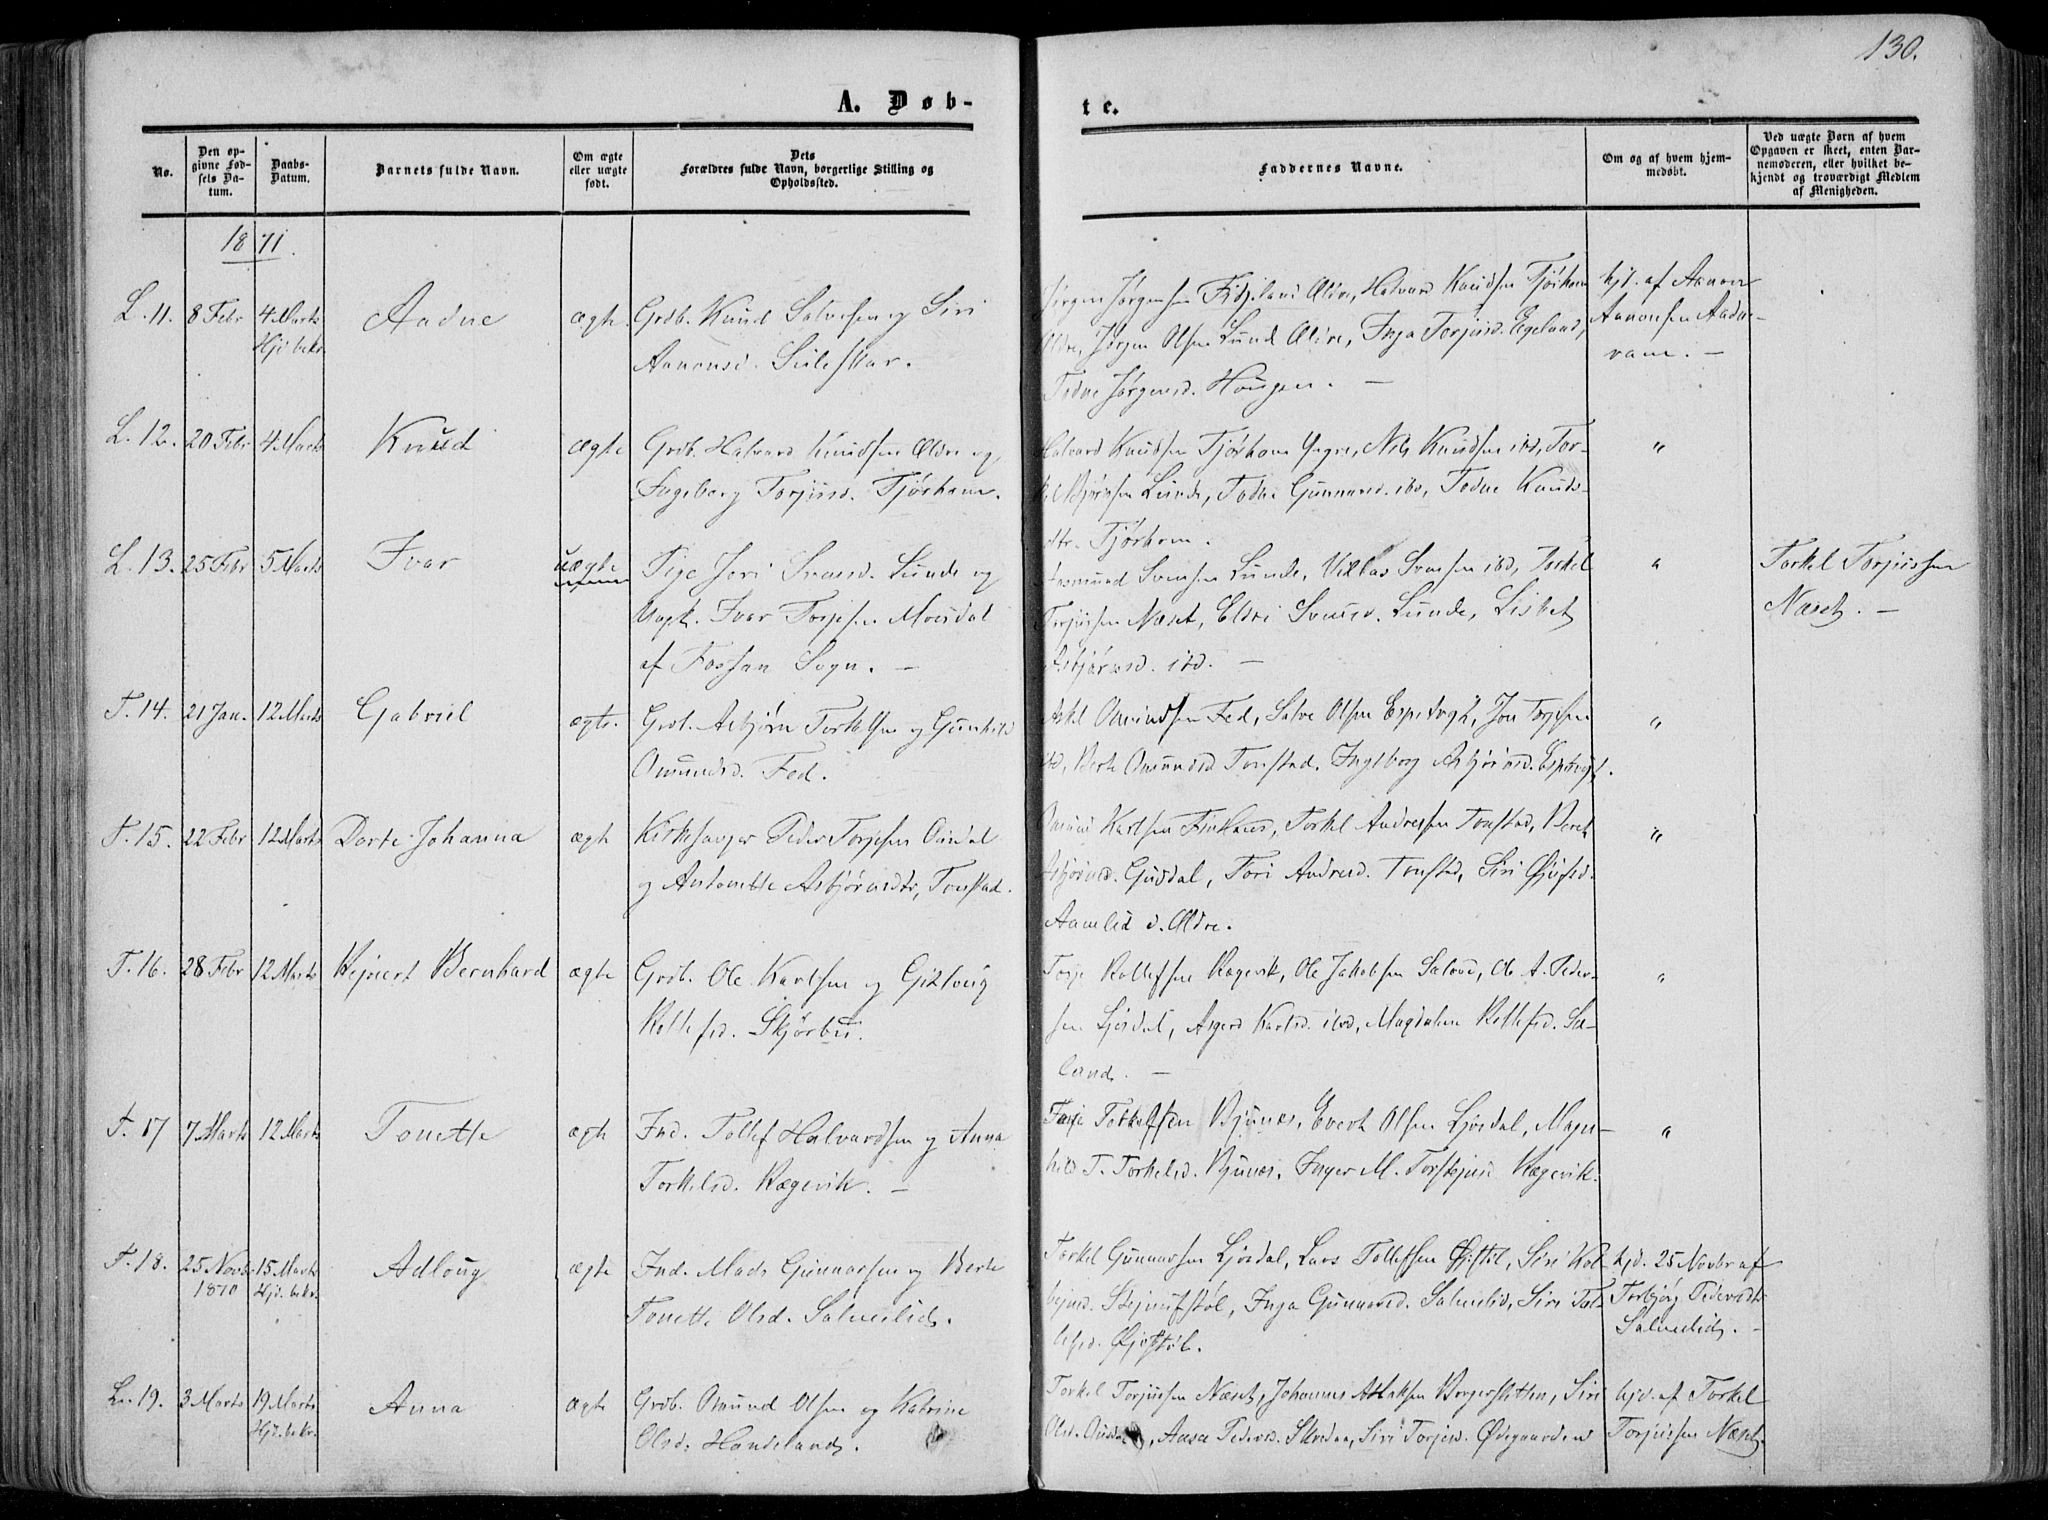 130.
A. Døb-
te.
No.
Den op-
givne Fød-
sels Da-
tum.
Daabs-
Datum.
Barnets fulde Navn.
Om ægte
eller uægte
født.
Dets
Forældres fulde Navn, borgerlige Stilling og
Opholdssted.
Faddernes Navne.
Om og af hvem hjem-
medøbt.
Ved uægte Børn af hvem
Opgaven er skeet, enten Bar-
nemoderen, eller hvilket be-
kjendt og troværdigt Medlem
af Menigheden.
1871.
L. 11. 8 Febr 4 Marts Aadne ægte Grdb. Knud Salvesen og Siri
Hj. bekr.
Aanensd. Suleskar.
Jørgen Jørgensen Fidjeland Ældre, Halvard Knudsen Tjørhom
Ældre, Jørgen Olsen Lund Ældre, Inga Terjesd. Egeland,
Todne Jørgensd. Haugen. —
hjd. af Aanon
Aanonsen Aadne-
vam. —
L. 12. 20 Febr 4 Marts Knud ægte Grdb. Halvard Knudsen Ældre og
Ingeborg Torjusd. Tjørhom.
Halvard Knudsen Tjørhom Yngre, Nils Knudsen ibd, Tor-
kel Bjørnsen Lunde, Todne Gunnarsd. ibd, Todne Knuds-
dtr. Tjørhom.
"
L. 13. 25 Febr 5 Marts Ivar uægte Pige Jori Svensd. Lunde og
Ungk. Ivar Torjesen Mousdal
af Fossan Sogn. —
Aasmund Svensen Lunde, Niklas Svensen ibd, Torkel
Torjussen Næset, Eldri Svensd. Lunde, Lisbet
Asbjørnsd. ibd. —
"
Torkel Torjussen
Næset. —
T. 14. 21 Jan. 12 Marts Gabriel ægte. Grdb. Asbjørn Torkelsen og Gunhild
Omundsd. Fed.
Askel Omundsen Fed, Salve Olsen Espetvgt, Jon Torjesen
ibd, Berte Omundsd Tonstad. Ingeborg Asbjørnsd. Espetvgt.
"
T. 15. 22 Febr 12 Marts Dorte Johanna ægte Kirkesanger Peder Torjesen Ousdal
og Antonette Asbjørnsdtr, Tonstad.
Omund Karlsen Finhaus, Torkel Andresen Tonstad, Beret
Asbjørnsd. Gusdal, Tori Andresd. Tonstad, Siri Øjufsd.
Aamlid d. Ældre.
"
T. 16. 28 Febr 12 Marts Rejnert Bernhard ægte Grdb. Ole Karlsen og Gitlaug
Rollefsd. Skjørbu.
Torje Rollefsen Rægevik, Ole Jakobsen Salove, Ole A. Peder-
sen Ljosdal, Asgerd Karlsd. ibd, Magdalen Rollefsd. Se-
land. —
"
T. 17 7 Marts 12 Marts Tonette ægte Ind. Tollef Halvardsen og Anna
Torkelsd. Rægevik. —
Terje Torkelsen Bjunes, Evert Olsen Ljosdal, Magn-
hild T. Torkelsd. Bjunes, Inger M. Torkjusd Rægevik.
"
T. 18. 25 Novbr 15 Marts Adloug ægte Ind. Mads Gunnarsen og Berte
1870 Hj. bekr.
Tonette Olsd. Salmelid.
Torkel Gunnarsen Ljosdal, Lars Tollefsen Øjestøl, Siri Kol-
bejnsd. Stejnufstøl, Inga Gunnarsd. Salmelid, Siri Tol-
lefsd. Øjestøl.
hjd. 25 Novbr af
Torbjørg Pedersdt.
Salmelid. —
L. 19. 3 Marts 19 Marts Anna ægte Grdb. Omund Olsen og Katrine
Hjd. bekr.
Olsd. Handeland.
Torkel Torjussen Næset, Johannes Atlaksen Borgersletten, Siri
Olsd. Ousdal, Aase Pedersd. Skredaa, Siri Torjesd. Ødegaarden
hjd. af Torkel
Torjussen Næset.